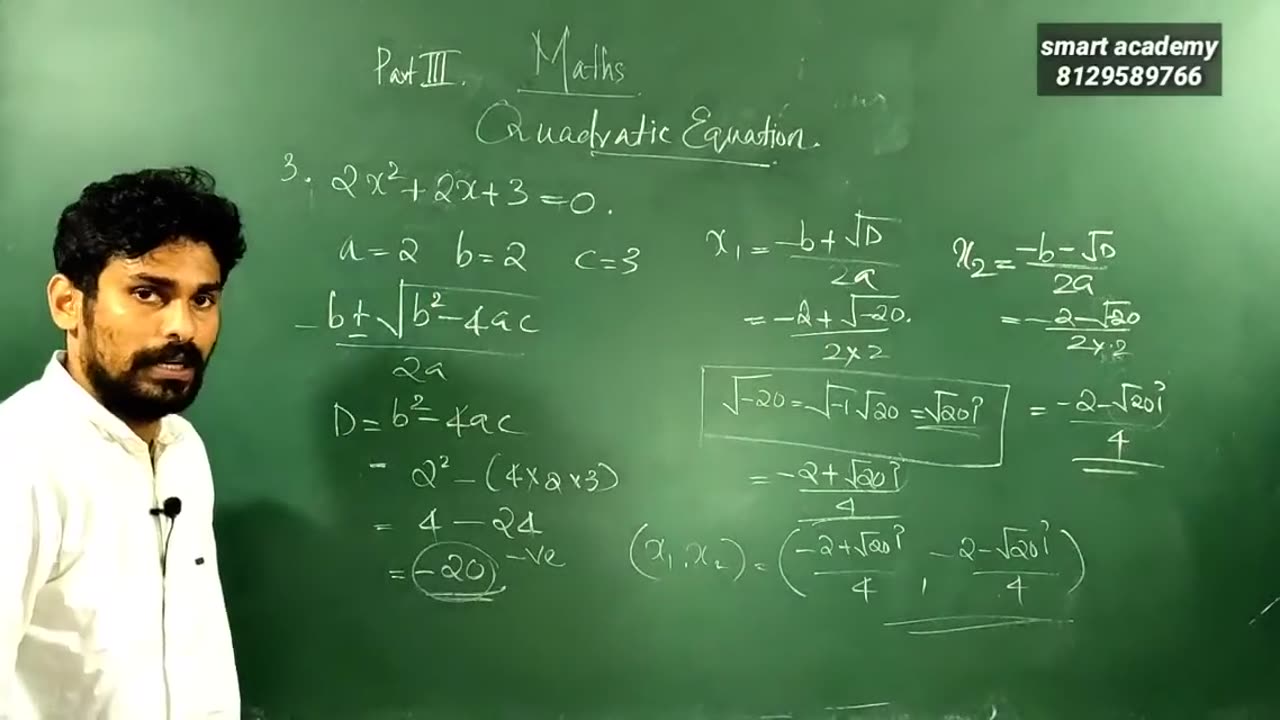 smart academy
8129589766
Part III. Maths
Quadratic Equation.
3. 2x²+2x+3=0.
a=2 b=2 c=3
-b±√b²-4ac
2a
D=b²-4ac
= 2²-(4×2×3)
= 4-24
= -20. -ve
x₁ = -b+√D
2a
= -2+√-20.
2×2
√-20=√-1√20=√20i
= -2+√20i
4
x₂=-b-√D
2a
=-2-√-20
2×2
= -2-√20i
4
(x₁,x₂)=(-2+√20i/4, -2-√20i/4)